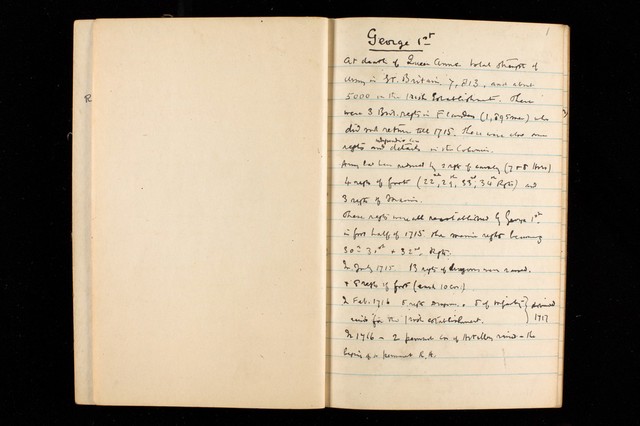 1
George 1st
At death of Queen Anne total strength of
Army in Gt. Britain 7,813, and about
5000 on the Irish Establishment. There
were 3 Brit. regts in Flanders (1,895 men) who
did not return till 1715. There were also some
regts and independent cos details in the Colonies.
Army had been reduced by 2 regts of cavalry (7 & 8 Horse)
4 regts of foot (22nd, 29th, 33rd, 34th Regts) and
3 regts of Marines.
These regts were all reestablished by George 1st
in first half of 1715 the marine regts becoming
30th 31st & 32nd Regts.
In July 1715 13 regts of dragoons were raised.
& 8 regts of foot (each 10 cos.)
In Feb. 1716 5 regts Dragoons & 5 of Infantry } disbanded
for the Irish establishment. 1717
In 1716 - 2 permanent cos of Artillery raised - the
basis of a permanent R.A.